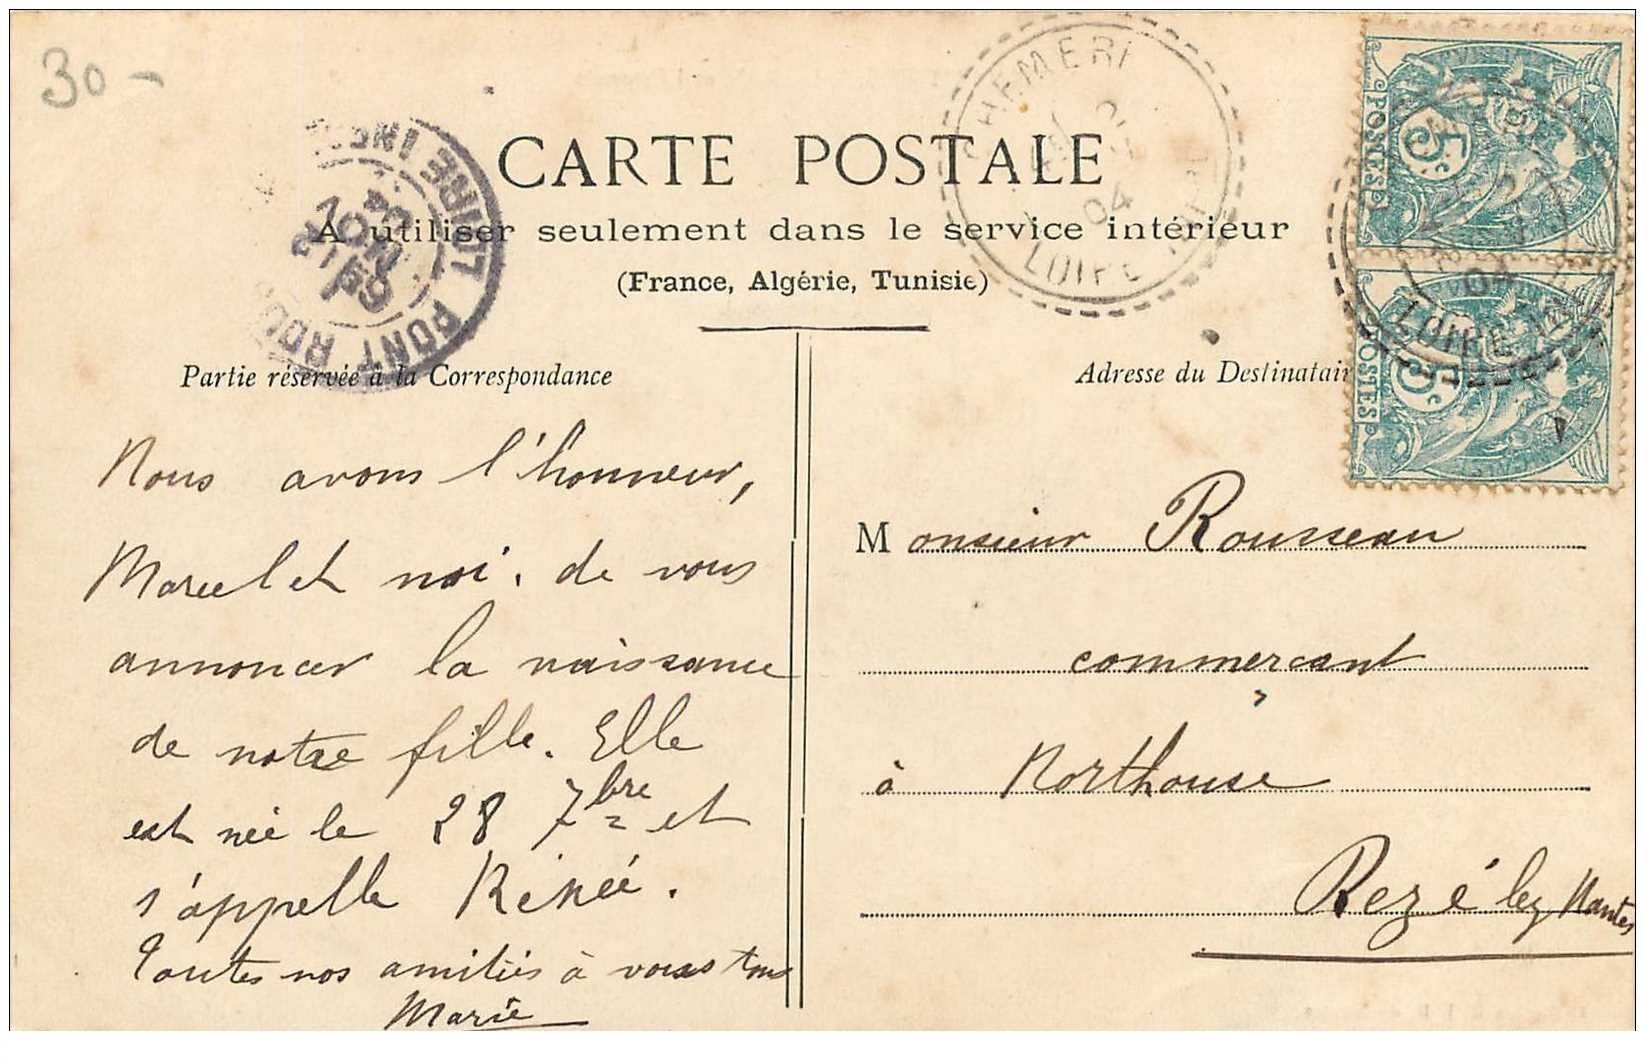 30-
CARTE POSTALE
A utiliser seulement dans le service intérieur
(France, Algérie, Tunisie)
Partie réservée à la Correspondance
Nous avons l'honneur,
Marcel et moi, de vous
annoncer la naissance
de notre fille. Elle
est née le 28 7bre et
s'appelle Rénée.
Toutes nos amitiés à vous tous
Marie
Adresse du Destinatair
Monsieur Rousseau
commerçant
à Northouse
Rezé lez Nantes
CHEMERE
04
LOIRE INF
POSTES 5c
POSTES 5c
04
LOIRE
LOIRE INF
PONT ROU